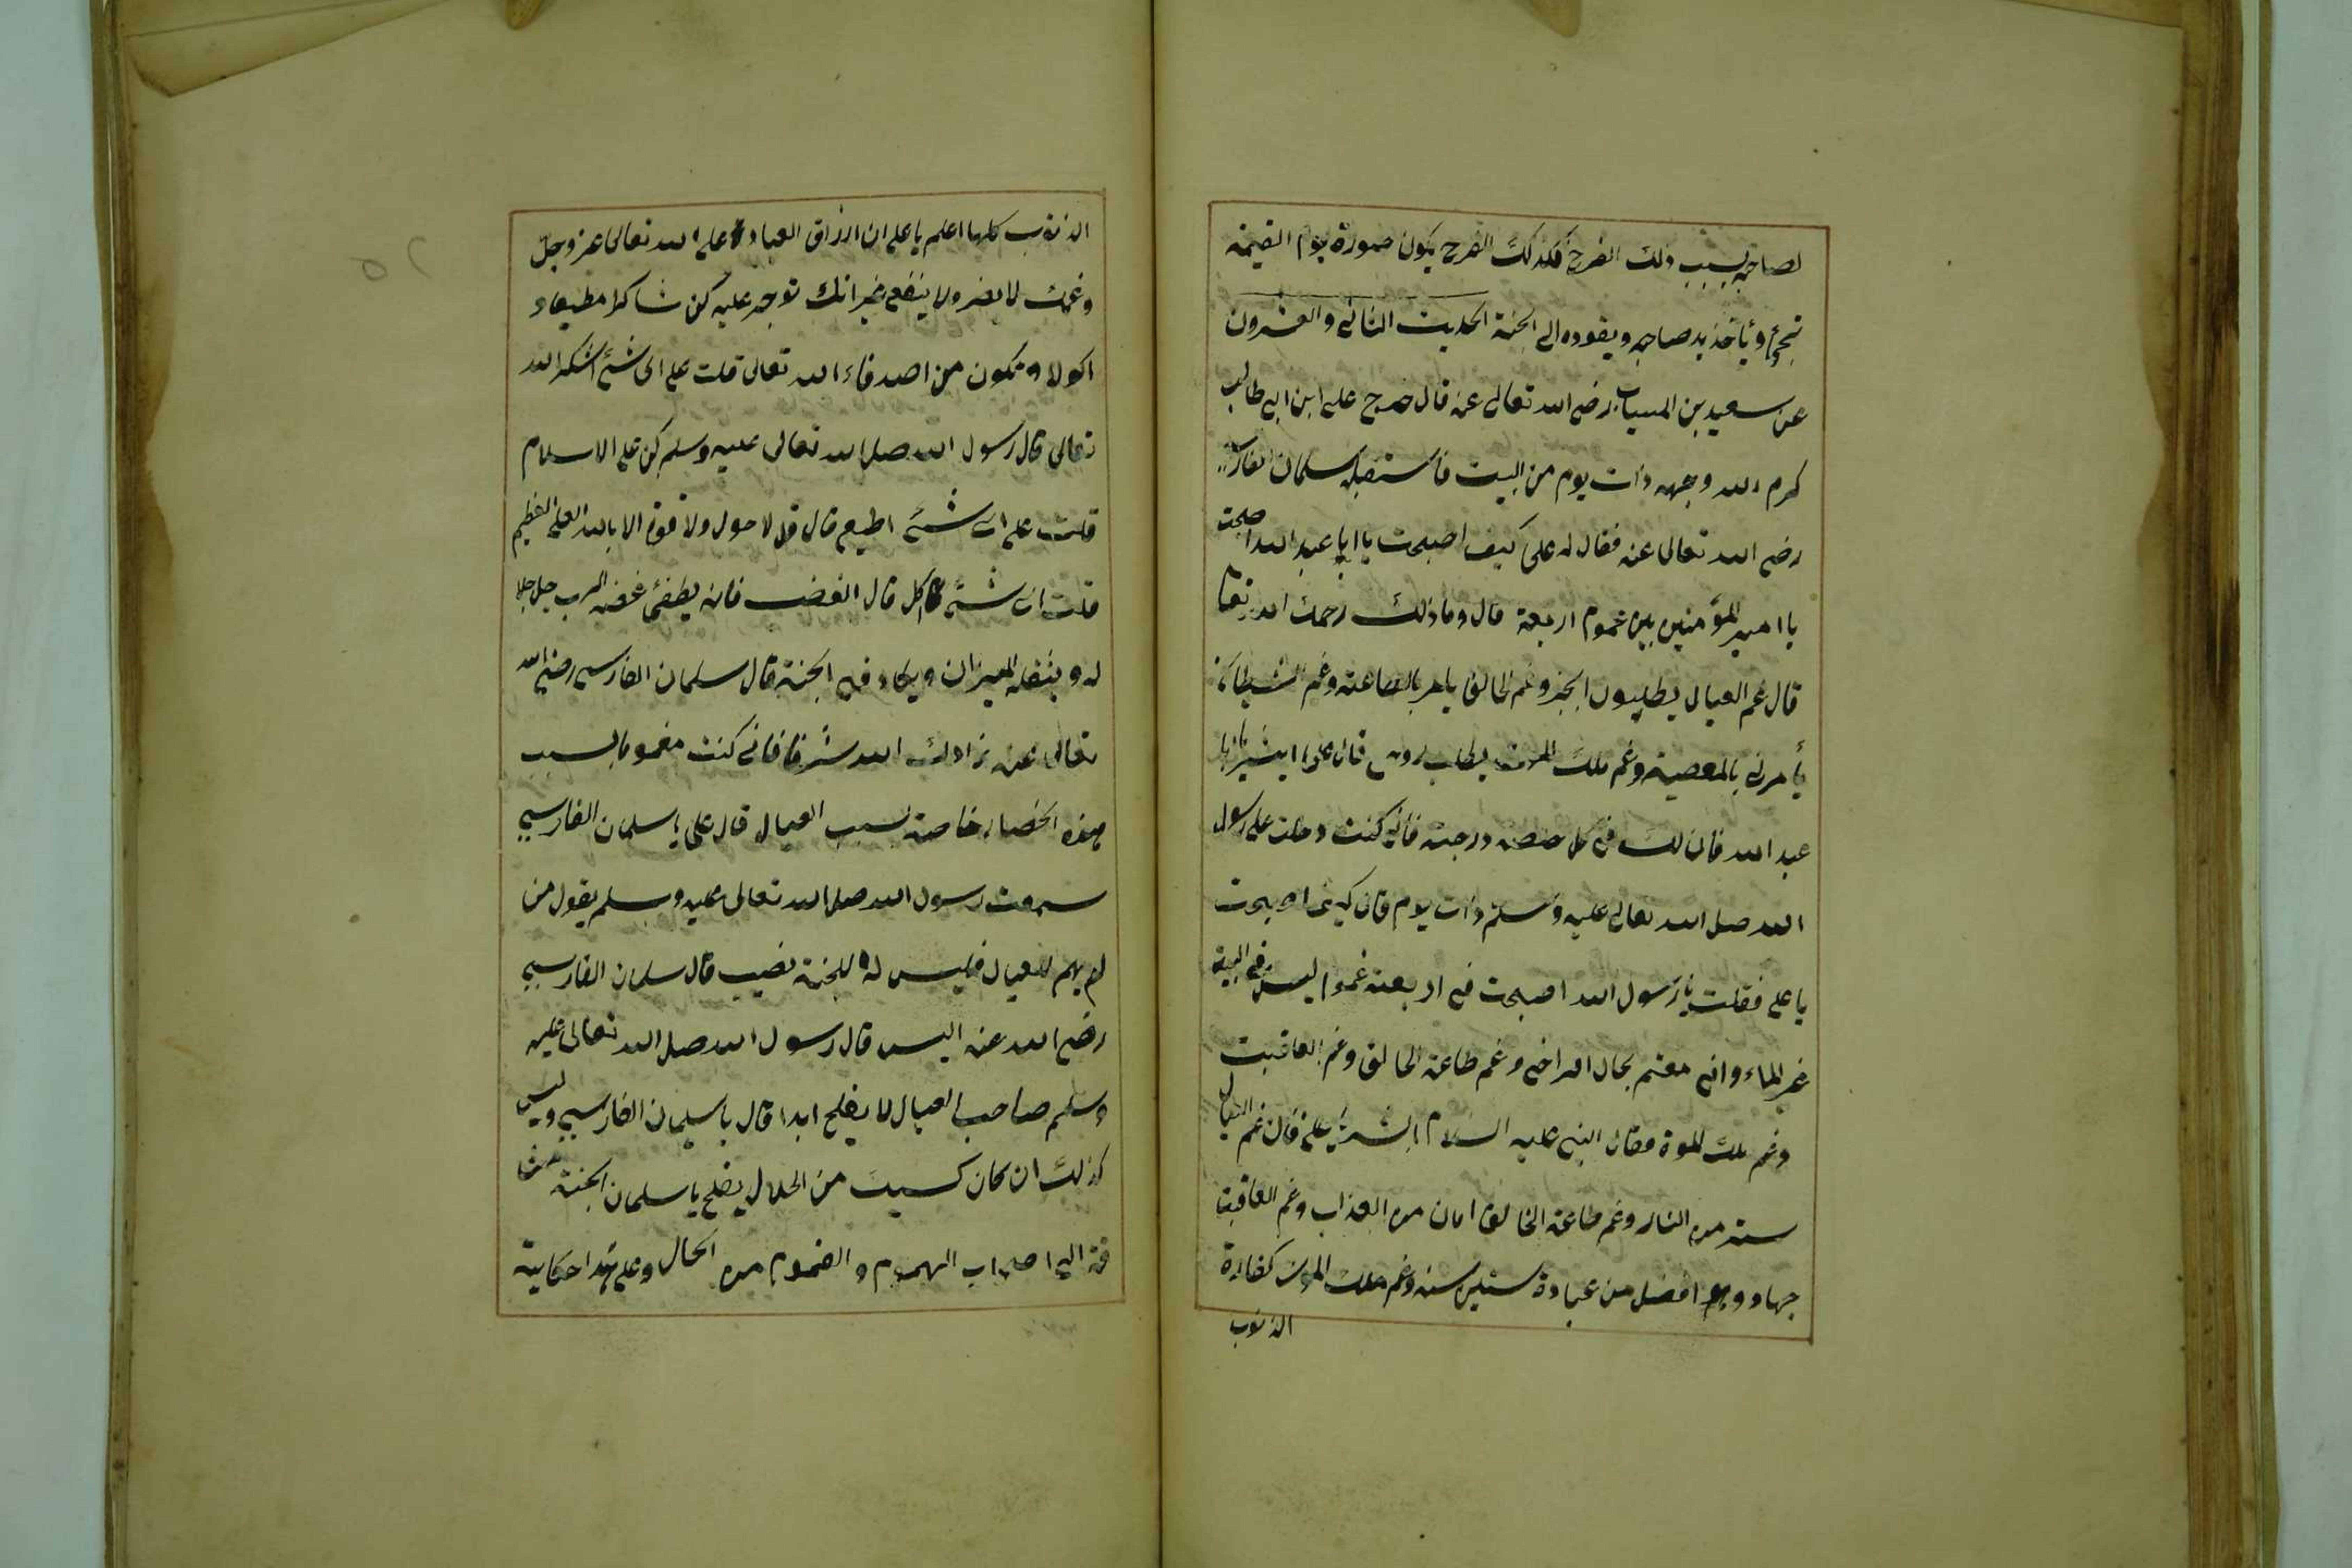 لصاحبه بسبب ذلك الفرح فكذلك الفرح يكون صورة يوم القيمة
تجئ ويأخذ يد صاحبه ويقوده الى الجنة الحديث الثاني والعشرون
عن سعيد بن المسيب رضى الله تعالى عنه قال خرج على ابن ابى طالب
كرم الله وجهه ذات يوم من البيت فاستقبله سلمان الفارسى
رضى الله تعالى عنه فقال له على كيف اصبحت يا ابا عبد الله اصبحت
يا امير المؤمنين بين غموم اربعة قال وما ذلك رحمك الله تعا
قال غم العيال يطلبون الخبز وغم الخالق يامر بالطاعة وغم الشيطان
يأمرنى بالمعصية وغم ملك الموت يطلب روحى قال على ابشر يا ابا
عبد الله فان لك فى كل خصلة درجة فأنى كنت دخلت على رسول
الله صلى الله تعالى عليه وسلم ذات يوم قال كيف اصبحت
يا على فقلت يا رسول الله اصبحت فى اربعة غموم ليس فى البيت
غير الماء وانى مغتم بحال افراخى وغم طاعة الخالق وغم العاقبت
وغم ملك الموة فقال النبى عليه السلام ابشر يا على فان غم العيال
ستر من النار وغم طاعة الخالق امان من العذاب وغم العاقبت
جهاد وهو افضل من عبادة ستين سنه وغم ملك الموت كفارة
الذنوب
الذنوب كلها اعلم يا على ان ارزاق العباد على الله تعالى عز وجل
وغمك لا يضر ولا ينفع غير انك توجر عليه كن شاكرا مطيعا و
اكولا وتكون من اصدقاء الله تعالى قلت على اى شئ اشكر الله
تعالى قال رسول الله صلى الله تعالى عليه وسلم كن على الاسلام
قلت على اى شئ اطيع قال قل لا حول ولا قوة الا بالله العلى العظيم
قلت اى شئ اكل قال الغضب فانه يطفئ غضب الرب جل جلا
له ويثقل الميزان ويكاد فى الجنة قال سلمان الفارسى رضى الله
تعالى عنه زادك الله شرفا فانى كنت مغموما بسبب
هذه الخصال خاصة بسبب العيال قال على يا سلمان الفارسى
سمعت رسول الله صلى الله تعالى عليه وسلم يقول من
لم يهم للعيال فليس له للجنة نصيب قال سلمان الفارسى
رضى الله عنه اليس قال رسول الله صلى الله تعالى عليه
وسلم صاحب العيال لا يفلح ابدا قال يا سلمان الفارسى وليس
كذلك ان كان كسبت من الحلال يفلح يا سلمان الجنة مشتا
قة الى اصحاب الهموم والغموم من الحال وعلى هذا حكاية